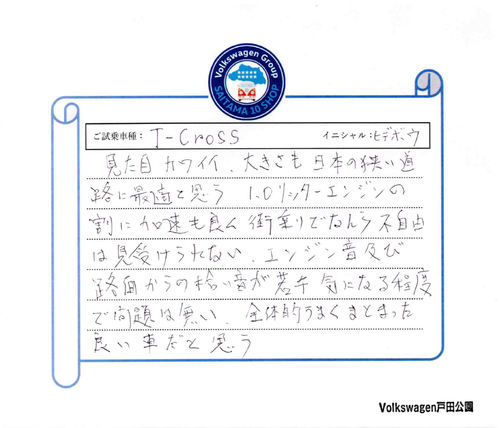 Volkswagen Group
SAITAMA 10 SHOP
ご試乗車種： T-Cross イニシャル：ヒデボウ
見た目カワイイ、大きさも日本の狭い道
路に最適と思う 1.0リッターエンジンの
割に加速も良く街乗りでなんら不自由
は見受けられない、エンジン音及び
路面からの拾い音が若干気になる程度
で問題は無い、全体的うまくまとまった
良い車だと思う
Volkswagen戸田公園